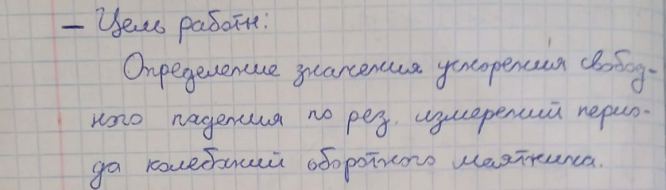 – Цель работы:
Определение значения ускорения свобод-
ного падения по рез. измерений перио-
да колебаний оборотного маятника.